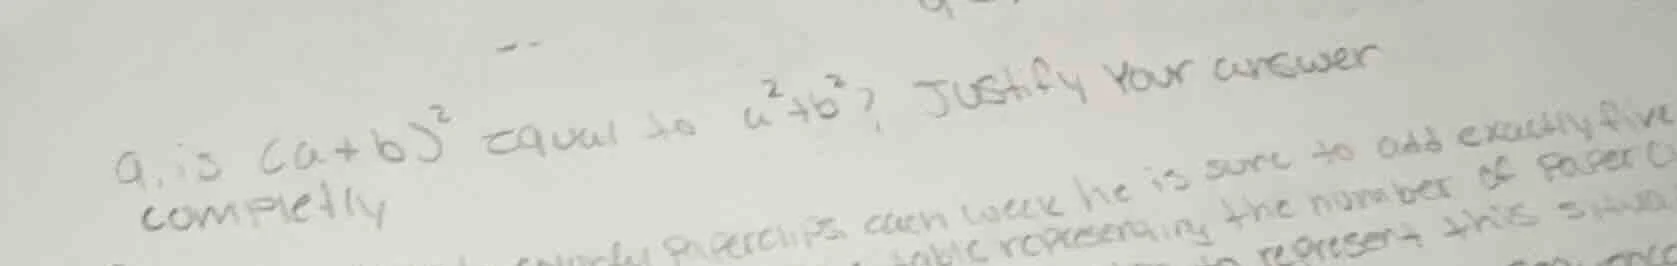 a. is (a+b)² equal to a²+b²? Justify your answer
completly
paperclips each week he is sure to add exactly five
table representing the number of paper
represent this